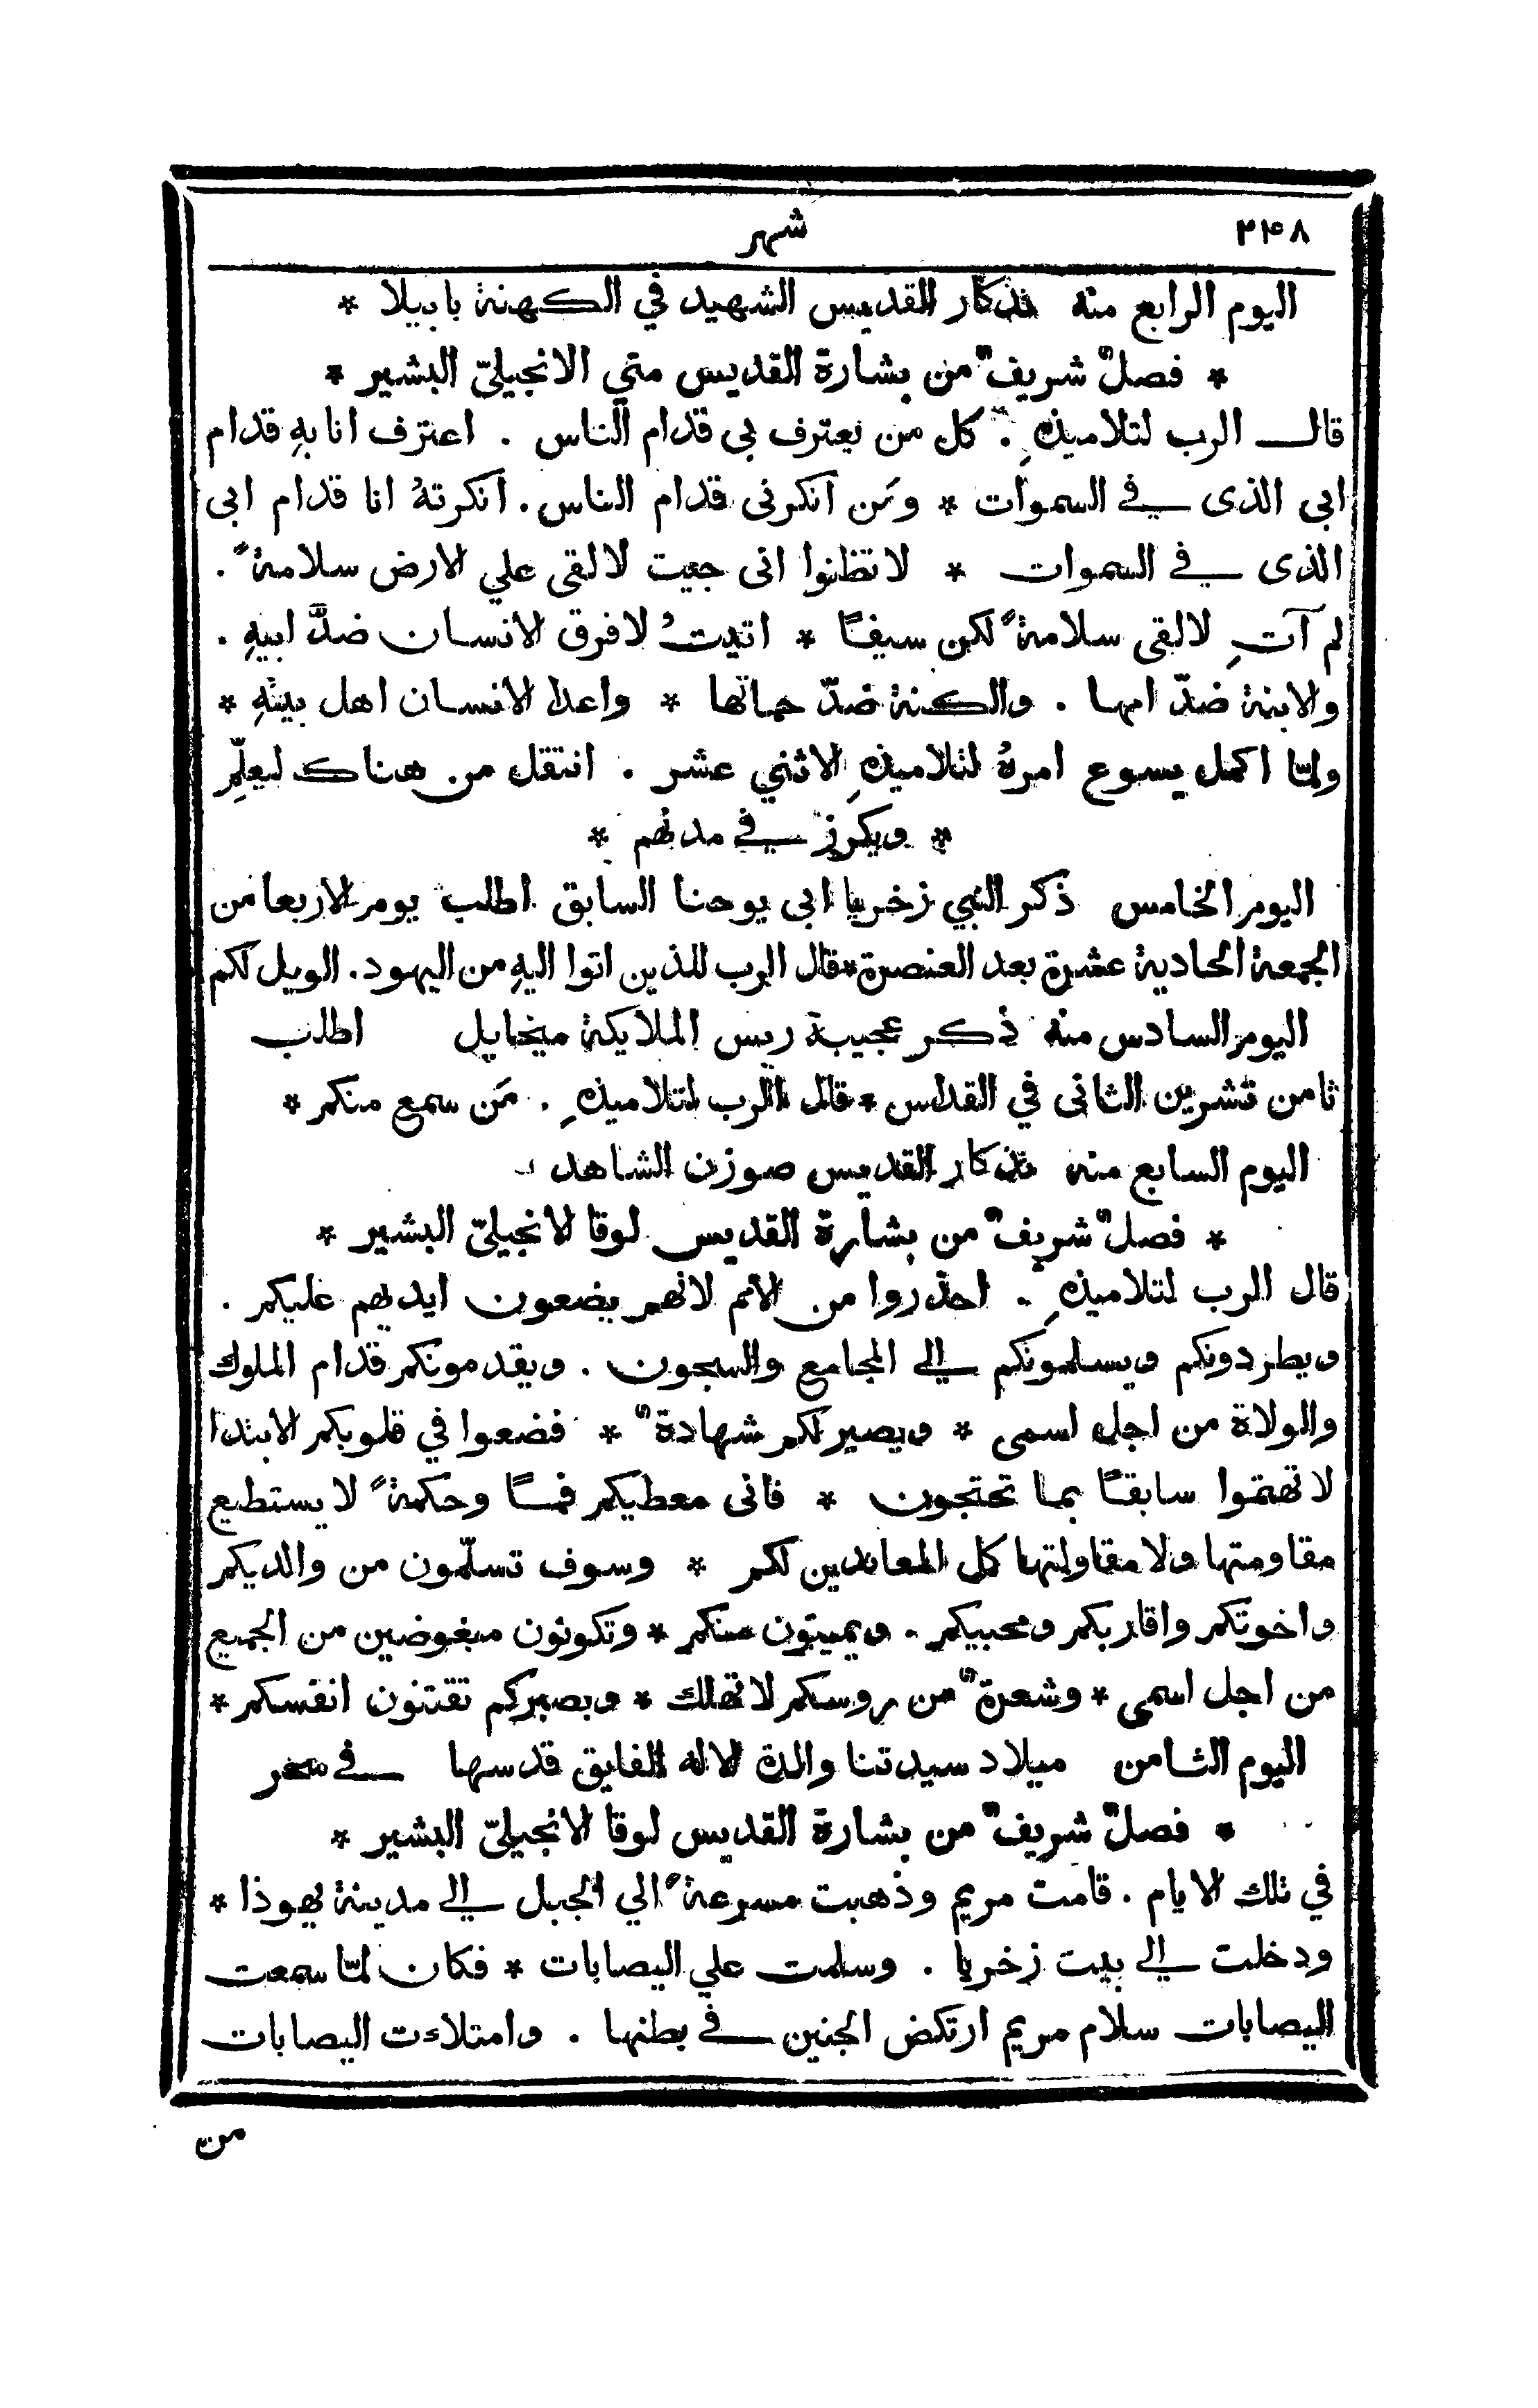 ٢٣٨ شهر
اليوم الرابع منه تذكار القديس الشهيد في الكهنة بابيلا *
* فصلٌ شريفٌ من بشارة القديس متي الانجيليّ البشير *
قال الرب لتلاميذهِ . كل من يعترف بى قدام الناس . اعترف انا بهِ قدام
ابى الذى في السموات * ومَن انكرنى قدام الناس . انكرتهُ انا قدام ابى
الذى في السموات * لا تظنوا انى جيت لالقى علي الارض سلامةً .
لم آتِ لالقى سلامةً لكن سيفًا * اتيتُ لافرق الانسان ضدَّ ابيهِ .
والابنة ضدّ امها . والكنة ضدّ حماتها * واعدا الانسان اهل بيتهِ *
ولمّا اكمل يسوع امرهُ لتلاميذهِ الاثني عشر . انتقل من هناك ليعلِّم
* ويكرز في مدنهم *
اليوم الخامس ذكر النبي زخريا ابى يوحنا السابق اطلب يوم الاربعا من
الجمعة الحادية عشرة بعد العنصرة * قال الرب للذين اتوا اليهِ من اليهود . الويل لكم
اليوم السادس منه ذكر عجيبة ريس الملايكة ميخايل اطلب
ثامن تشرين الثانى في القداس * قال الرب لتلاميذهِ . مَن سمع منكم *
اليوم السابع منه تذكار القديس صوزن الشاهد
* فصلٌ شريفٌ من بشارة القديس لوقا الانجيليّ البشير *
قال الرب لتلاميذهِ . احذروا من الامم لانهم يضعون ايديهم عليكم .
ويطردونكم ويسلمونكم الي المجامع والسجون . ويقدمونكم قدام الملوك
والولاة من اجل اسمى * ويصير لكم شهادةٌ * فضعوا في قلوبكم الابتدا
لا تهتموا سابقًا بما تحتجون * فانى معطيكم فمًا وحكمةً لا يستطيع
مقاومتها ولا مقاولتها كل المعاندين لكم * وسوف تسلّمون من والديكم
واخوتكم واقاربكم ومحبيكم . ويميتون منكم * وتكونون مبغوضين من الجميع
من اجل اسمى * وشعرةٌ من روسكم لا تهلك * وبصبركم تقتنون انفسكم *
اليوم الثامن ميلاد سيدتنا والدة الاله الفايق قدسها في سحر
* فصلٌ شريفٌ من بشارة القديس لوقا الانجيليّ البشير *
في تلك الايام . قامت مريم وذهبت مسرعةً الي الجبل الي مدينة يهوذا *
ودخلت الي بيت زخريا . وسلمت علي اليصابات * فكان لمّا سمعت
اليصابات سلام مريم ارتكض الجنين في بطنها . وامتلاءت اليصابات
من